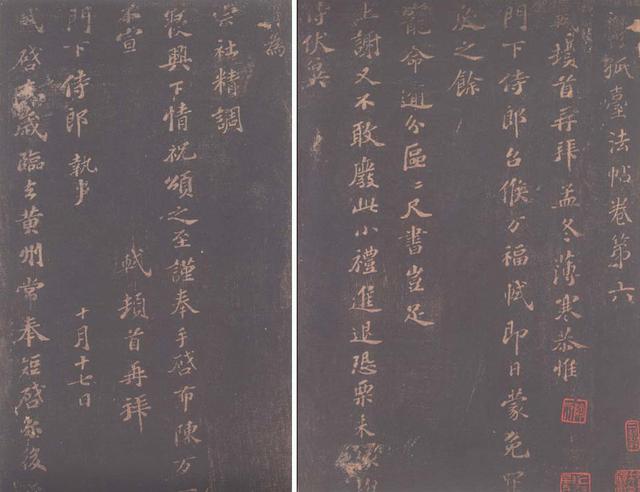 孤臺法帖卷第六
頓首再拜孟冬薄寒恭惟
門下侍郎台候万福軾即日蒙免罪
戾之餘
寵命逾分區二尺書豈足
上謝又不敢廢此小禮進退恐栗未
侍伏冀
為
宗社精調
寢興下情祝頌之至謹奉手啓布陳万一
不宣 軾頓首再拜
門下侍郎 執事 十月十七日
軾啓去歲臨去黃州常奉短啓尓後